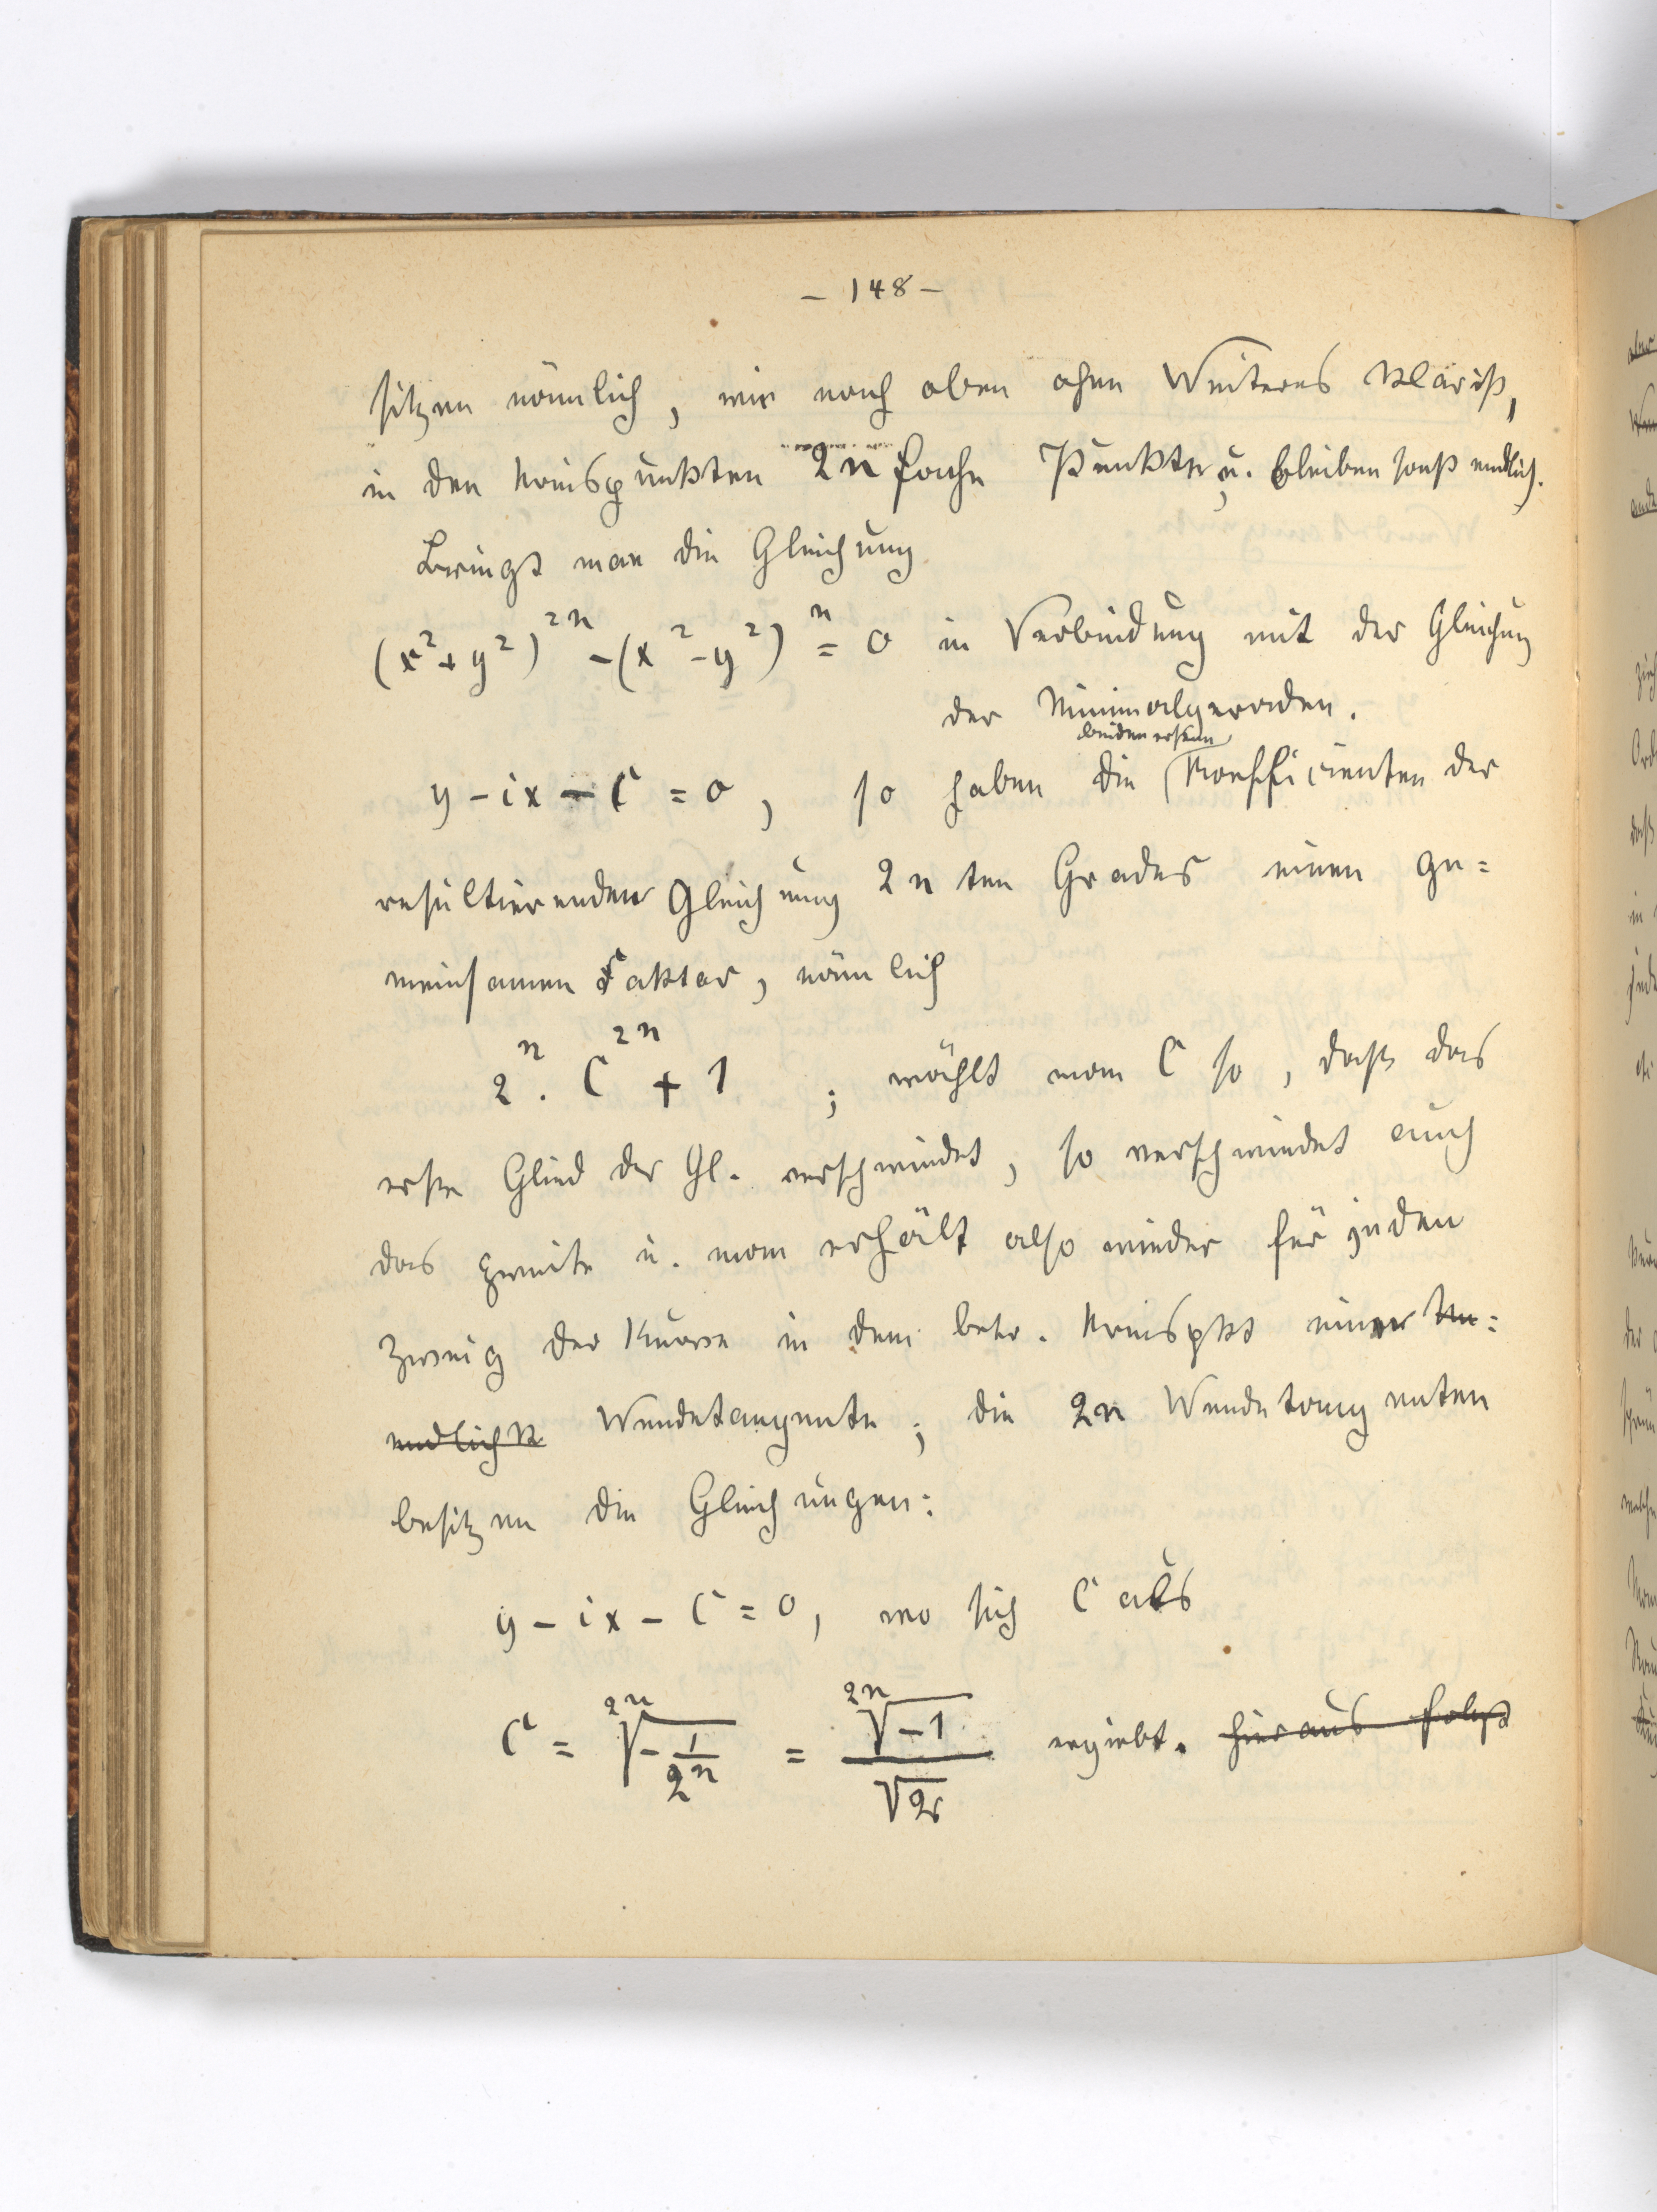 – 148 –
sitzen nämlich, wie nach oben ohne Weiteres klar ist,
in den Kreispunkten 2n fache Punkte, u. bleiben sonst endlich.
Bringt man die Gleichung
(x²+y²)²ⁿ – (x²–y²)ⁿ = 0 in Verbindung mit der Gleichung
der Minimalgeraden.
y – ix – C = 0, so haben die beiden ersten Koefficienten der
resultierenden Gleichung 2n ten Grades einen ge=
meinsamen Faktor, nämlich
2ⁿ · C²ⁿ + 1 ; wählt man C so, daß das
erste Glied der Gl. verschwindet, so verschwindet auch
das zweite u. man erhält also wieder für jeden
Zweig der Kurve in dem betr. Kreispkt eine Un=
endlichk Wendetangente; die 2n Wendetangenten
besitzen die Gleichungen:
y – ix – C = 0, wo sich C als
C = ²ⁿ√(–1/2ⁿ) = ²ⁿ√–1 / √2 ergiebt. hieraus folgt